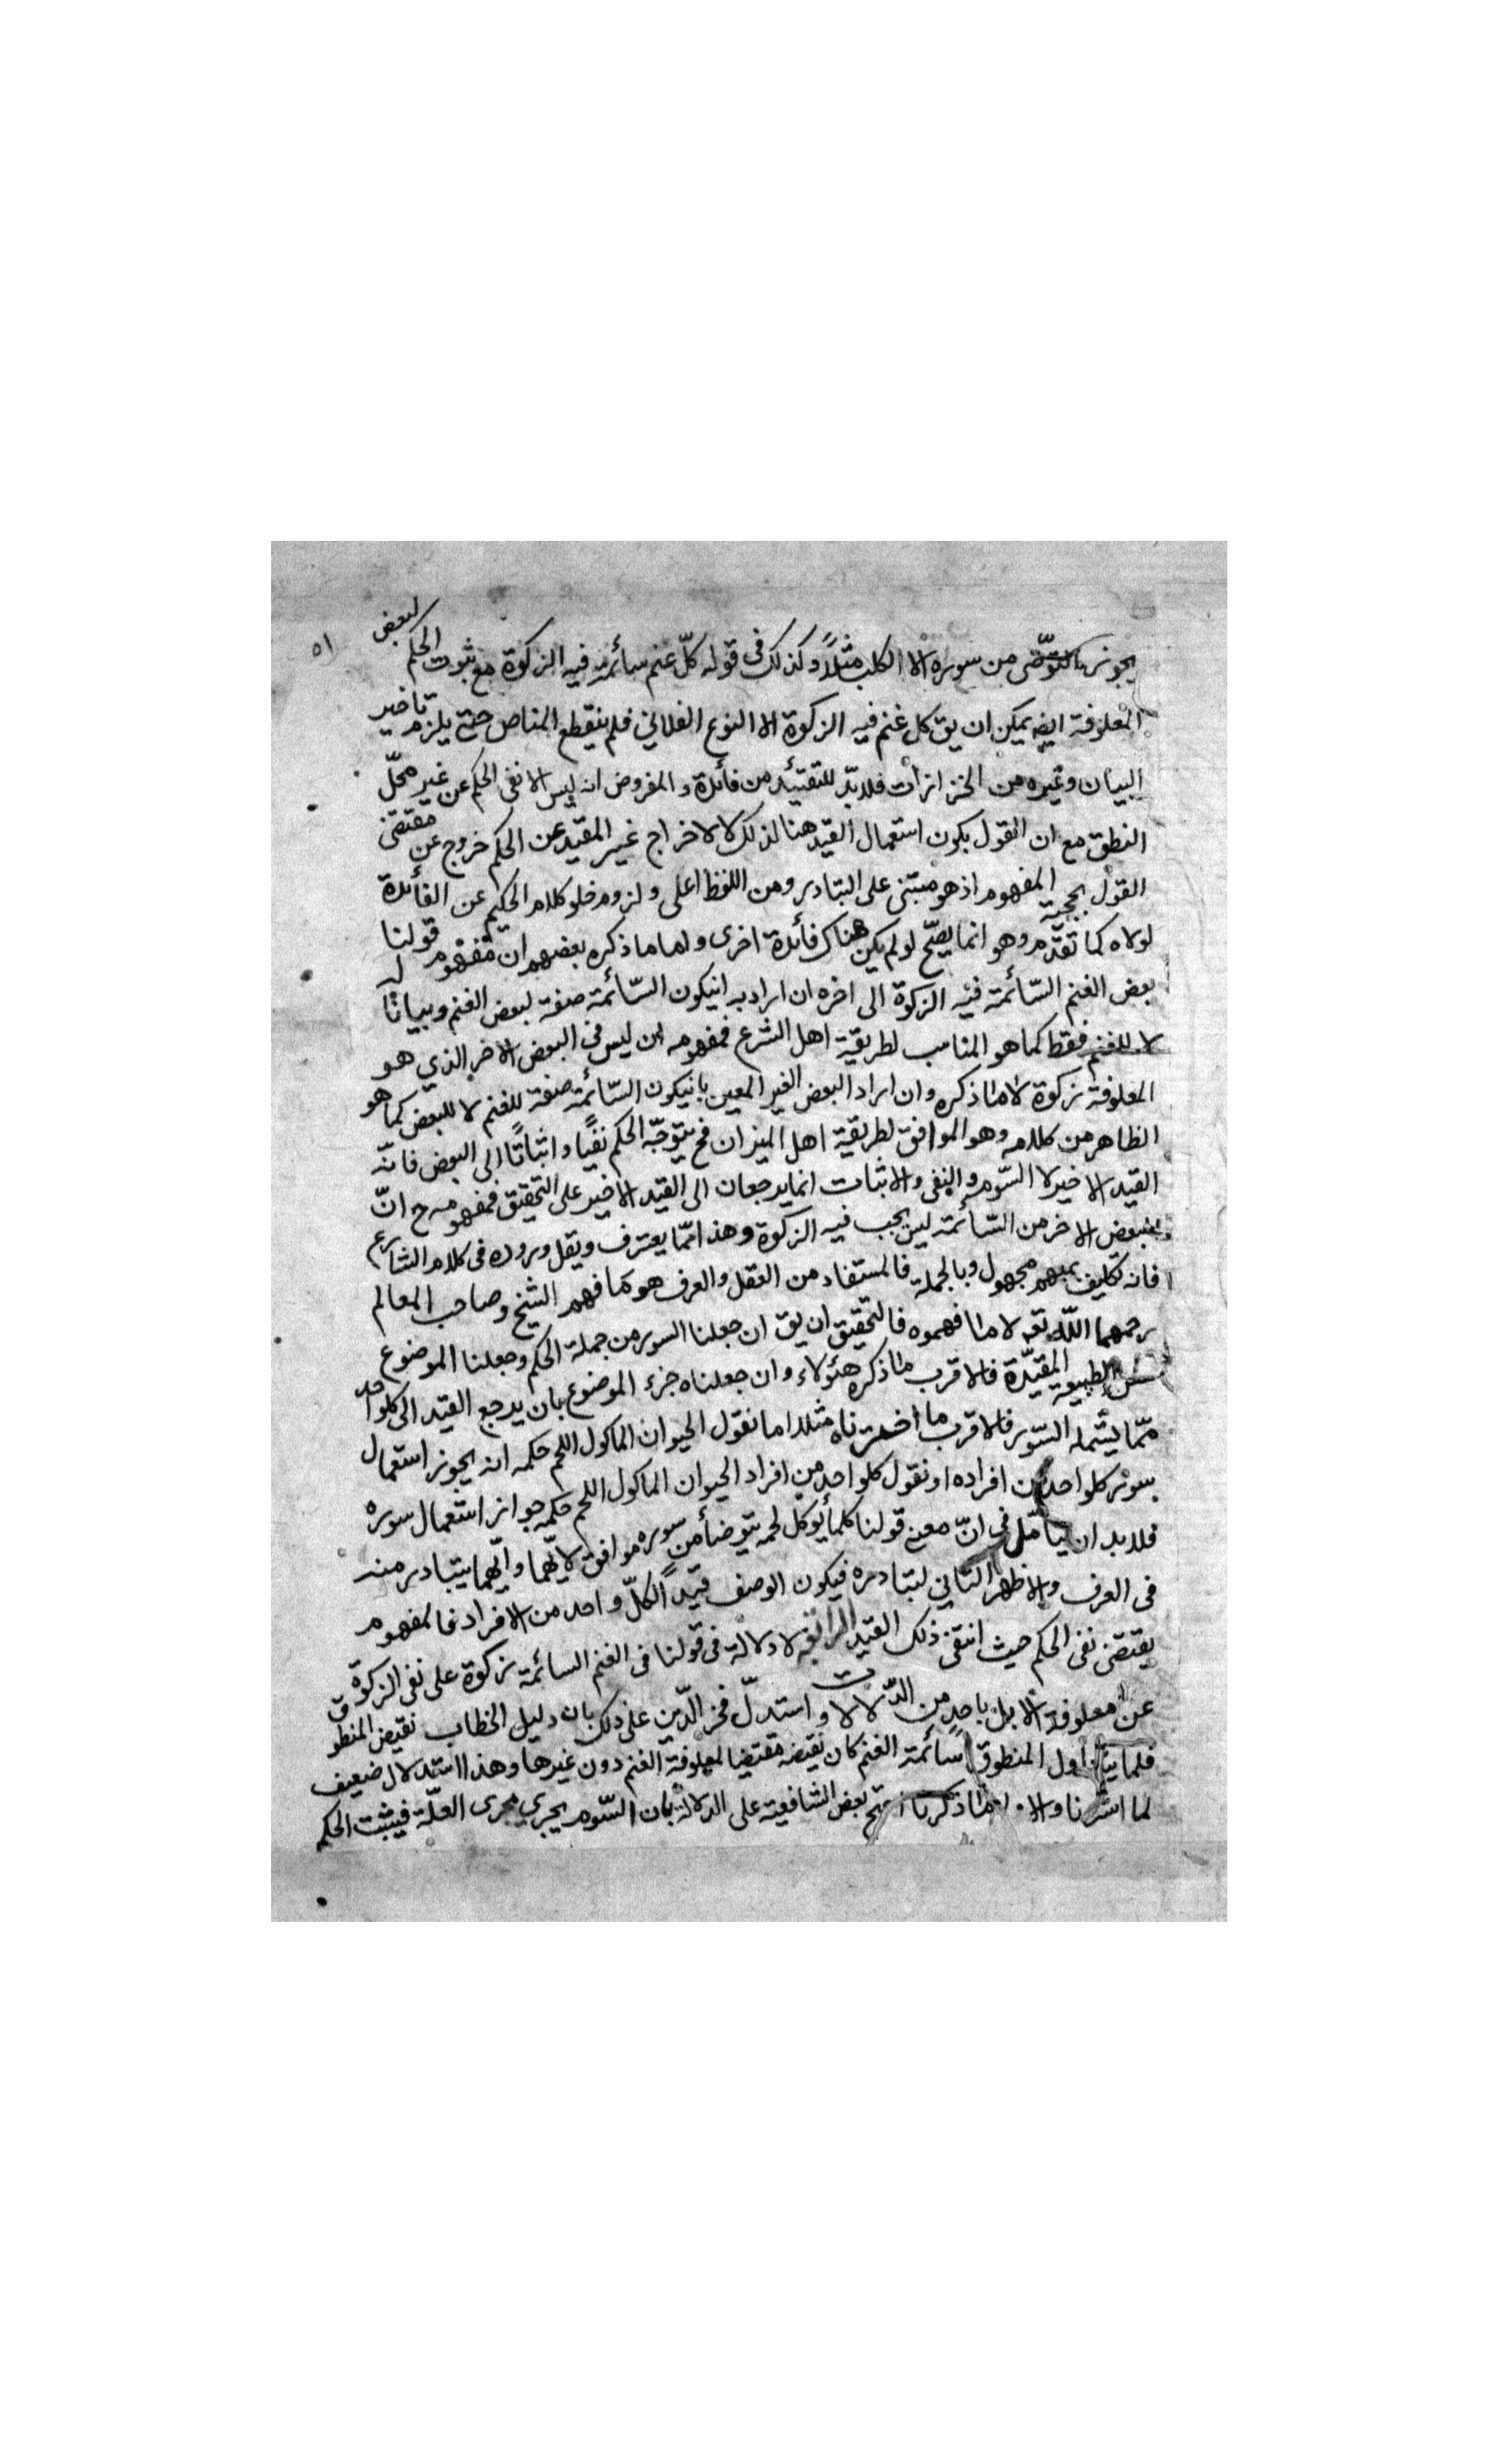 ٥١
يجوز التوضى من سوره الا الكلب مثلاً وكذلك فى قوله كلّ غنم سائمة فيه الزكوة مع ثبوت الحكم لبعض
المعلوفة ايضا يمكن ان يق كل غنم فيه الزكوة الا النوع الفلاني فلم ينقطع المناص حتى يلزم تاخير
البيان وغيره من الخزازات فلا بدّ للتقييد من فائدة والمفروض انه ليس الا نفى الحكم عن غير محلّ
النطق مع ان القول بكون استعمال القيد هنا لذلك لا لاخراج غير المقيد عن الحكم خروج عن مقتضى
القول بحجية المفهوم اذ هو مبتنى على التبادر ومن اللفظ اعلى ولزوم خلو كلام الحكيم عن الفائدة
لولاه كما تقدّم وهو انما يصحّ لو لم يكن هناك فائدة اخرى واما ما ذكره بعضهم ان مفهوم قولنا
بعض الغنم السّائمة فيه الزكوة الى اخره ان اراد به ان يكون السّائمة صفة لبعض الغنم وبيانا له
لا للغنم فقط كما هو المناسب لطريقة اهل الشرع فمفهومه ان ليس فى البعض الاخر الذي هو
المعلوفة زكوة لا ما ذكره وان اراد البعض الغير المعين بان يكون السّائمة صفة للغنم لا للبعض كما هو
الظاهر من كلامه وهو الموافق لطريقة اهل الميزان فح يتوجّه الحكم نفيًا واثباتًا الى البعض فانّه
القيد الاخير لا السّوم والنفى والاثبات انما يرجعان الى القيد الاخير على التحقيق فمفهومه ح انّ
البعض الاخر من السّائمة ليس يجب فيه الزكوة وهذا ممّا يعترف ويقل وروده فى كلام الشارع
فانه تكليف بمبهم مجهول وبالجملة فالمستفاد من العقل والعرف هو ما فهمه الشيخ وصاحب المعالم
رحمهما اللّه تعالى لا ما فهموه فالتحقيق ان يق ان جعلنا السور من جملة الحكم وجعلنا الموضوع
نفس الطبيعة المقيّدة فالاقرب ما ذكره هؤلاء وان جعلناه جزء الموضوع بان يرجع القيد الى كلواحد
ممّا يشمله السّور فالاقرب ما اخترناه مثلا اما نقول الحيوان الماكول اللحم حكمه انه يجوز استعمال
سور كلواحد من افراده او نقول كلواحد من افراد الحيوان الماكول اللحم حكمه جواز استعمال سوره
فلا بد ان يتامّل فى انّ معنى قولنا كلما يؤكل لحمه يتوضأ من سوره موافق لايّهما وايّهما يتبادر منه
فى العرف والاظهر الثاني لتبادره فيكون الوصف قيدًا لكلّ واحد من الافراد فالمفهوم
يقتضى نفى الحكم حيث انتفى ذلك القيد الرابع لا دلالة فى قولنا فى الغنم السائمة زكوة على نفى الزكوة
عن معلوفة الابل باحد من الدّلالات واستدلّ فخر الدّين على ذلك بان دليل الخطاب نقيض المنطوق
فلما يتناول المنطوق سائمة الغنم كان نقيضه مقتضيا لمعلوفة الغنم دون غيرها وهذا استدلال ضعيف
لما اشرنا والاولى ما ذكرنا احتج بعض الشافعية على الدلالة بان السّوم يجري مجرى العلّة فيثبت الحكم